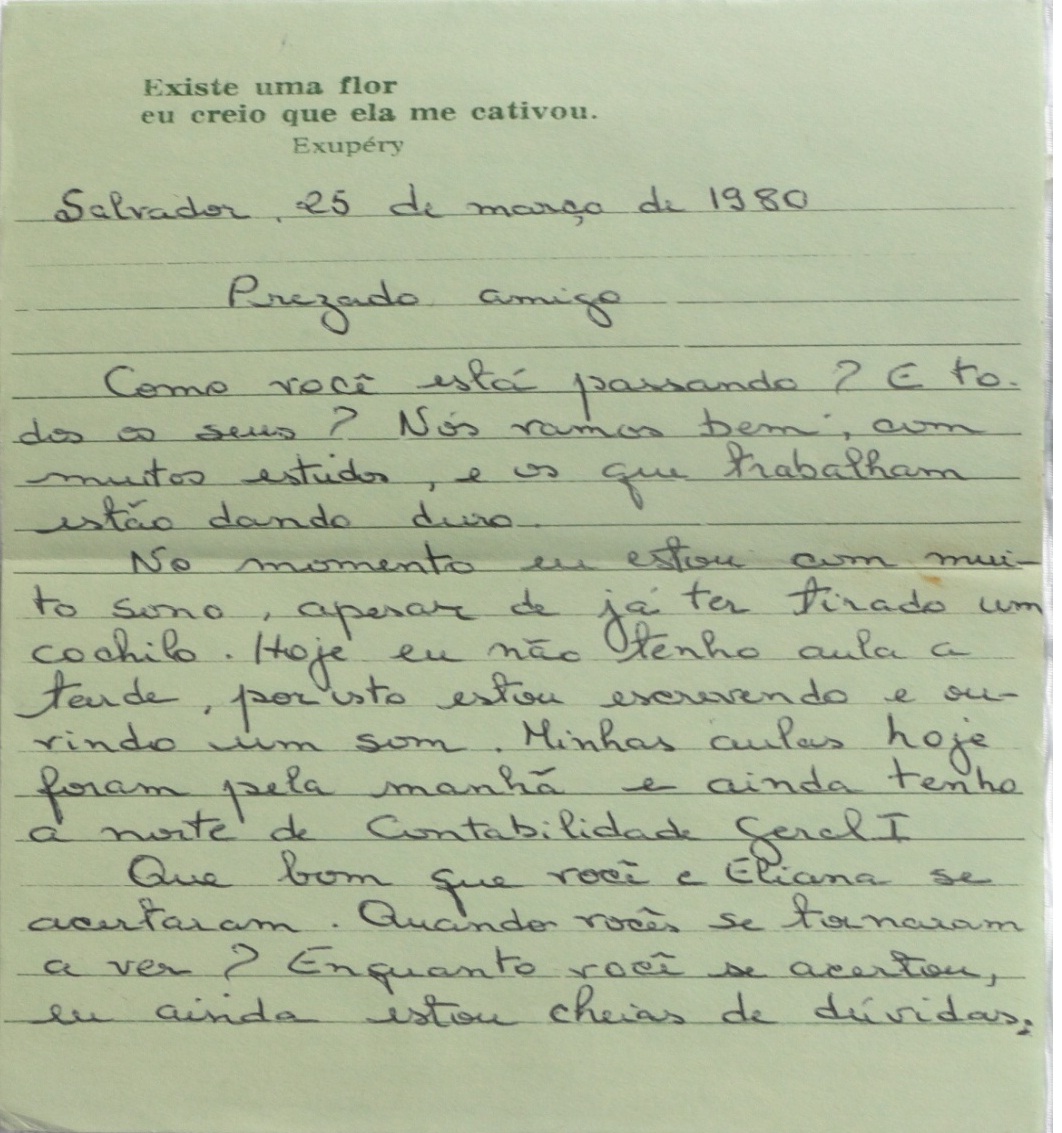 Existe uma flor
eu creio que ela me cativou.
Exupéry
Salvador, 25 de março de 1980
Prezado amigo
Como você está passando? E to-
dos os seus? Nós vamos bem, com
muitos estudos, e os que trabalham
estão dando duro.
No momento eu estou com mui-
to sono, apesar de já ter tirado um
cochilo. Hoje eu não tenho aula a
tarde, por isto estou escrevendo e ou-
vindo um som. Minhas aulas hoje
foram pela manhã e ainda tenho
a noite de Contabilidade Geral I
Que bom que você e Eliana se
acertaram. Quando vocês se tornaram
a ver? Enquanto você se acertou,
eu ainda estou cheias de dúvidas;